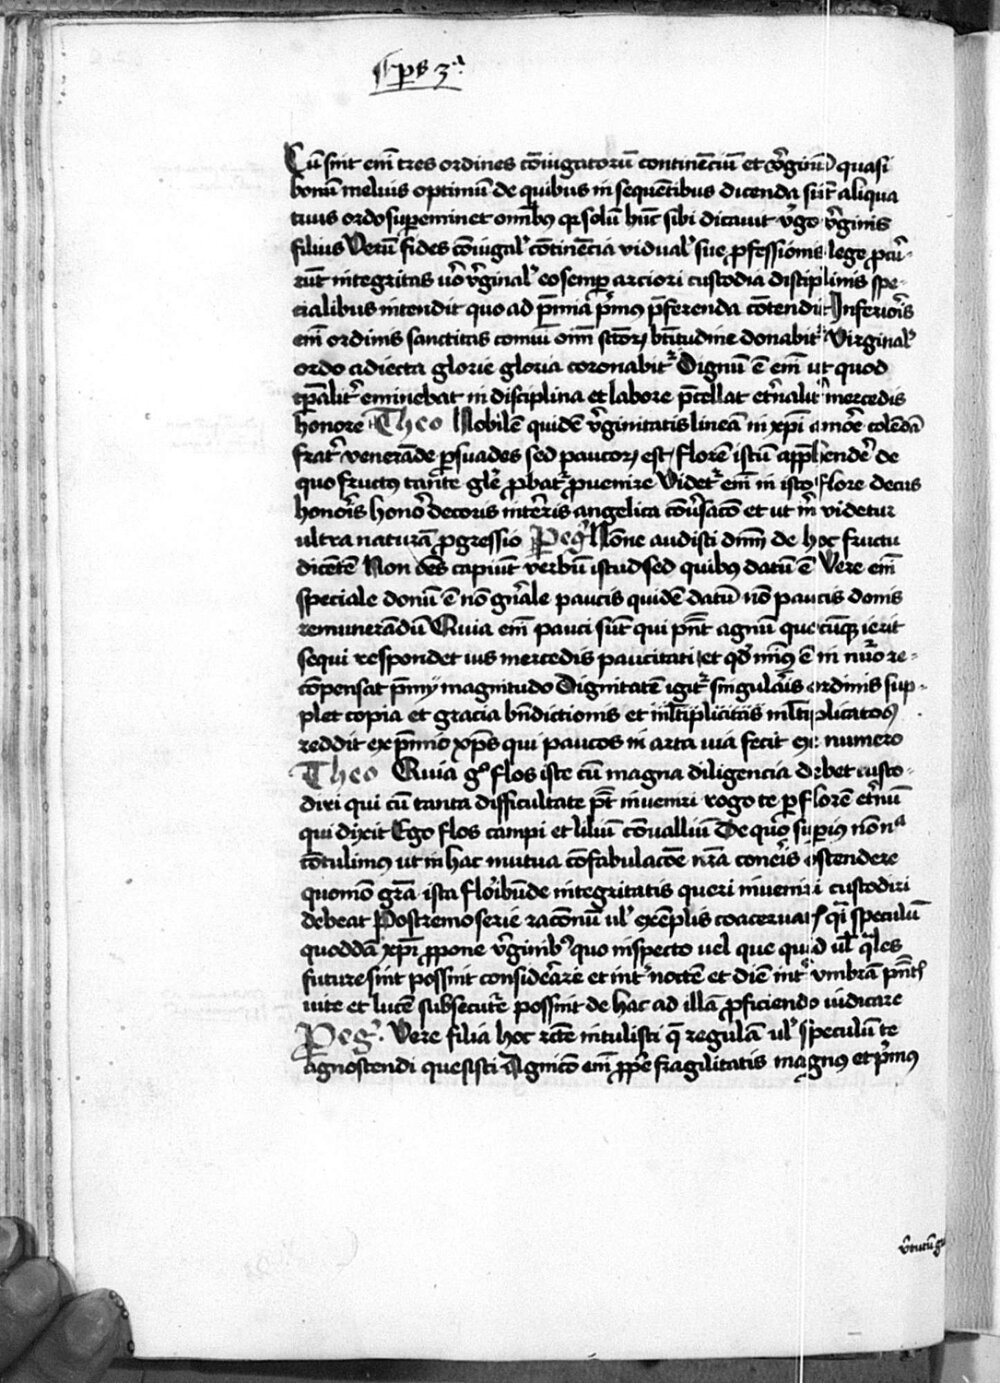 Ps 3ᵃ
Cū sint em̄ tres ordines cōiugatorū continenciū et v̓ginū quasi
bonū melius optimū de quibus in sequētibus dicenda sūt aliqua
tuus ordo sup̱eminet om̄ibꝯ q̱ solū hūc sibi dicauit v̓go v̓ginis
filius Verū fides cōiugal̓ cōtinēcia vidual̓ sue ꝓfessionis lege
rūt integritas v̓o v̓ginal̓ eo semp̱ arciori custodia disciplinis spe-
cialibus intendit quo ad p̄mia p̓mꝯ p̄ferenda cōtendit Inferio̓is
em̄ ordinis sanctitas comūi om̄ sc̄toꝝ bt̄itudine donabit᷑ Virginal̓
ordo adiecta glorie gloria coronabit᷑ Dignū ē em̄ ut quod
tp̄alit᷑ eminebat in disciplina et labore p̄cellat et̓nalit̓ mercedis
honore Theo Nobilē quidē v̓ginitatis lineā in xp̄i amo̓e colēdā
frat̓ venerāde p̱suades sed paucoꝝ est florē istū app̱hendē̓ de
quo fructꝯ tāte gl̓e ꝓbat᷑ ꝓuenire Videt᷑ em̄ in isto flore decus
hono̓is hono̓ decoris int̓eris angelica cōu̓sacō et ut m̓ videtur
ultra naturā ꝓgressio Peg̓ Nōne audisti dn̄m de hoc fructu
dicētē Non om̄s capiūt verbū istud sed quibꝯ datū ē Vere em̄
speciale donū ē nō gn̓ale paucis quidē datū nō paucis donis
remunerādū Quia em̄ pauci sūt qui pn̄t agnū quocūq̱ ierit
sequi respondet ius mercedis paucitati et qd̓ minꝯ ē in nu̓o re-
cōpensat p̄mij magnitudo Dignitatē igit᷑ singula̓is ordinis sup-
plet copia et gracia bn̄dictionis et ml̄tiplicitās ml̄tiplicatoꝯ
reddit ex p̄mio xp̄s qui paucos in arta uia fecit ex numero
Theo Quia gᵒ flos iste cū magna diligencia debet custo-
diri qui cū tanta difficultate pt̄ inueniri rogo te p̱ florē et̓nū
qui dixit Ego flos campi et liliū cōualliū De quo sup̱iꝯ nōnᵃ
cōtulimꝯ ut in hac mutua cōfabulacōe nr̄a conē̓is ostendere
quomō grā ista flo̓ibūde integritatis queri inueniri custodiri
debeat Postremo serie racōnū ul̓ exēplis coaceruat qͥ speculū
quoddā xp̄i ꝓpone v̓ginibꝯ quo inspecto uel que quid ul̓ q̄les
future sint possint consideāre et int̓ noctē et diē int̓ vmbrā pn̄tis
uite et lucē subsecut̓e possint de hac ad illā ꝓficiendo iudicare
Peg̓. Vere filia hoc rc̄te intulisti q̱ regulā ul̓ speculū te
agnoscendi quesisti Agnicō em̄ ꝓp̓e fragilitatis magnꝯ et p̓mꝯ
v̓tutū